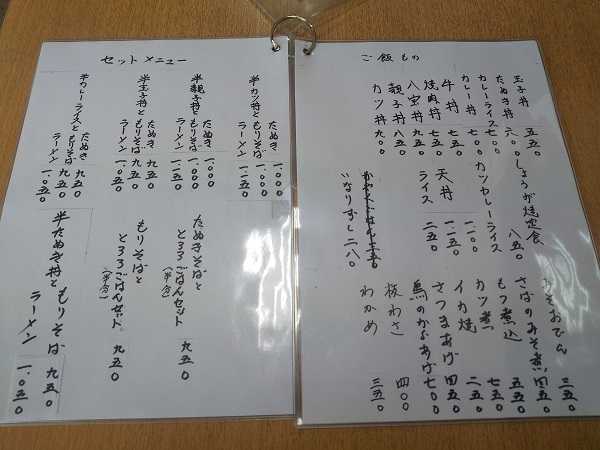 ご飯もの
玉子丼 五五〇
たぬき丼 六〇〇
カレーライス 七〇〇
カレー丼 七五〇
牛丼 七五〇
焼肉丼 七五〇
八宝丼 九五〇
親子丼 八五〇
カツ丼 九〇〇
しょうが焼定食 八五〇
カツカレーライス 一、一〇〇
天丼 一、一五〇
ライス 二五〇
いなりずし 二八〇
みそおでん 三五〇
さばのみそ煮 四五〇
もつ煮込 五五〇
カツ煮 七五〇
イカ焼 二五〇
さつまあげ 四五〇
鳥のからあげ 七〇〇
板わさ 四〇〇
わかめ 三五〇
セットメニュー
半カツ丼ともりそば 一、〇〇〇
たぬき 一、〇〇〇
ラーメン 一、一〇〇
半親子丼ともりそば 一、〇〇〇
たぬき 一、〇〇〇
ラーメン 一、一五〇
半玉子丼ともりそば 九五〇
たぬき 九五〇
ラーメン 一、〇五〇
半カレーライスともりそば 九五〇
たぬき 九五〇
ラーメン 一、〇五〇
たぬきそばと
とろろごはんセット(半分) 九五〇
もりそばと
とろろごはんセット(半分) 九五〇
半たぬき丼ともりそば 九五〇
ラーメン 一、〇五〇